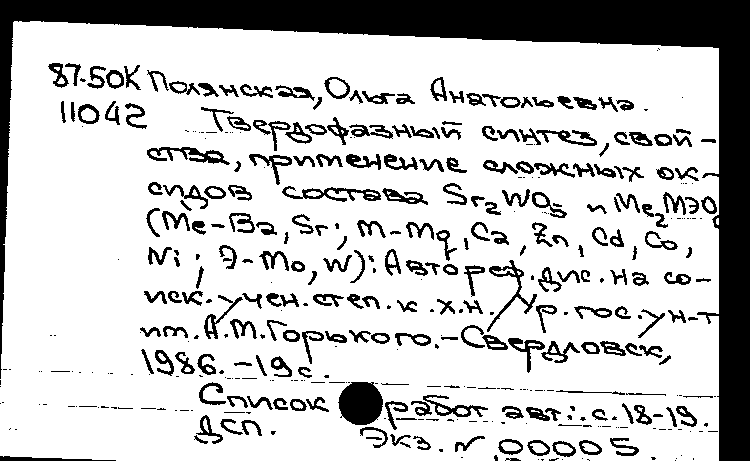 87-50К Полянская, Ольга Анатольевна.
11042 Твердофазный синтез, свой-
ства, применение сложных ок-
сидов состава Sr₂WO₅ и Me₂МЭО₆
(Me-Ba, Sr; М-Mg, Ca, Zn, Cd, Co,
Ni; Э-Mo, W): Автореф. дис. на со-
иск. учен. степ. к.х.н. / Ур. гос. ун-т
им. А.М. Горького. - Свердловск,
1986. - 19 с.
Список работ авт.: с. 18-19.
ДСП. Экз. № 00005.